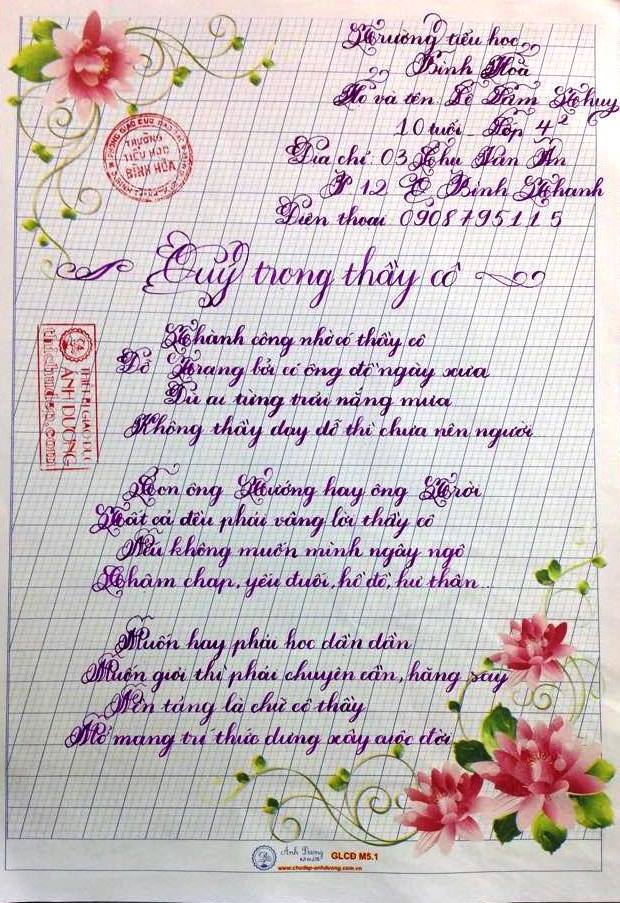 Trường tiểu học
Bình Hòa
Họ và tên: Lê Trâm Thuy
10 tuổi - Lớp 4²
Địa chỉ 03 Chu Văn An
P 12 Q Bình Thạnh
Điện thoại 0908795115
TRƯỜNG
TIỂU HỌC
BÌNH HÒA
Quý trọng thầy cô
Thành công nhờ có thầy cô
Đồ Trạng bởi có ông đồ ngày xưa
Dù ai từng trải nắng mưa
Không thầy dạy dỗ thì chưa nên người
Con ông Tướng hay ông Trời
Tất cả đều phải vâng lời thầy cô
Nếu không muốn mình ngây ngô
Chậm chạp, yếu đuối, hồ đồ, hư thân...
Muốn hay phải học dần dần
Muốn giỏi thì phải chuyên cần, hăng say
Nền tảng là chữ cô thầy
Mở mang trí thức dựng xây cuộc đời
ÁNH DƯƠNG
thichudep.com
Ánh Dương
GLCĐ M5.1
www.chudep-anhduong.com.vn